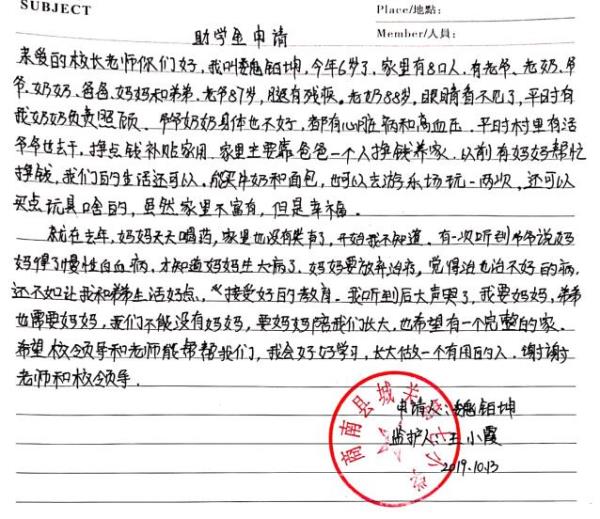 SUBJECT
Place/地點:
Member/人員:
助学金申请
亲爱的校长老师你们好,我叫魏铂坤,今年6岁了,家里有8口人,有老爷、老奶、爷
爷、奶奶、爸爸、妈妈和弟弟。老爷87岁,腿有残疾。老奶88岁,眼睛看不见了,平时有
我奶奶负责照顾、爷爷奶奶身体也不好,都有心脏病和高血压。平时村里有活
爷爷也去干,挣点钱补贴家用。家里主要靠爸爸一个人挣钱养家。以前有妈妈帮忙
挣钱,我们的生活还可以。能买牛奶和面包,也可以去游乐场玩一两次,还可以
买点玩具啥的,虽然家里不富有,但是幸福。
就在去年,妈妈天天喝药,家里也没有笑声了,开始我不知道。有一次听到爷爷说妈
妈得了慢性白血病,才知道妈妈生大病了。妈妈要放弃治疗,觉得治也治不好的病,
还不如让我和弟弟生活好点,接受好的教育。我听到后大声哭了,我要妈妈,弟弟
也需要妈妈,我们不能没有妈妈,要妈妈陪我们长大,也希望有一个完整的家。
希望校领导和老师能帮帮我们,我会好好学习,长大做一个有用的人。谢谢
老师和校领导。
申请人:魏铂坤
监护人:王小霞
2019.10.13
商南县城关第七小学